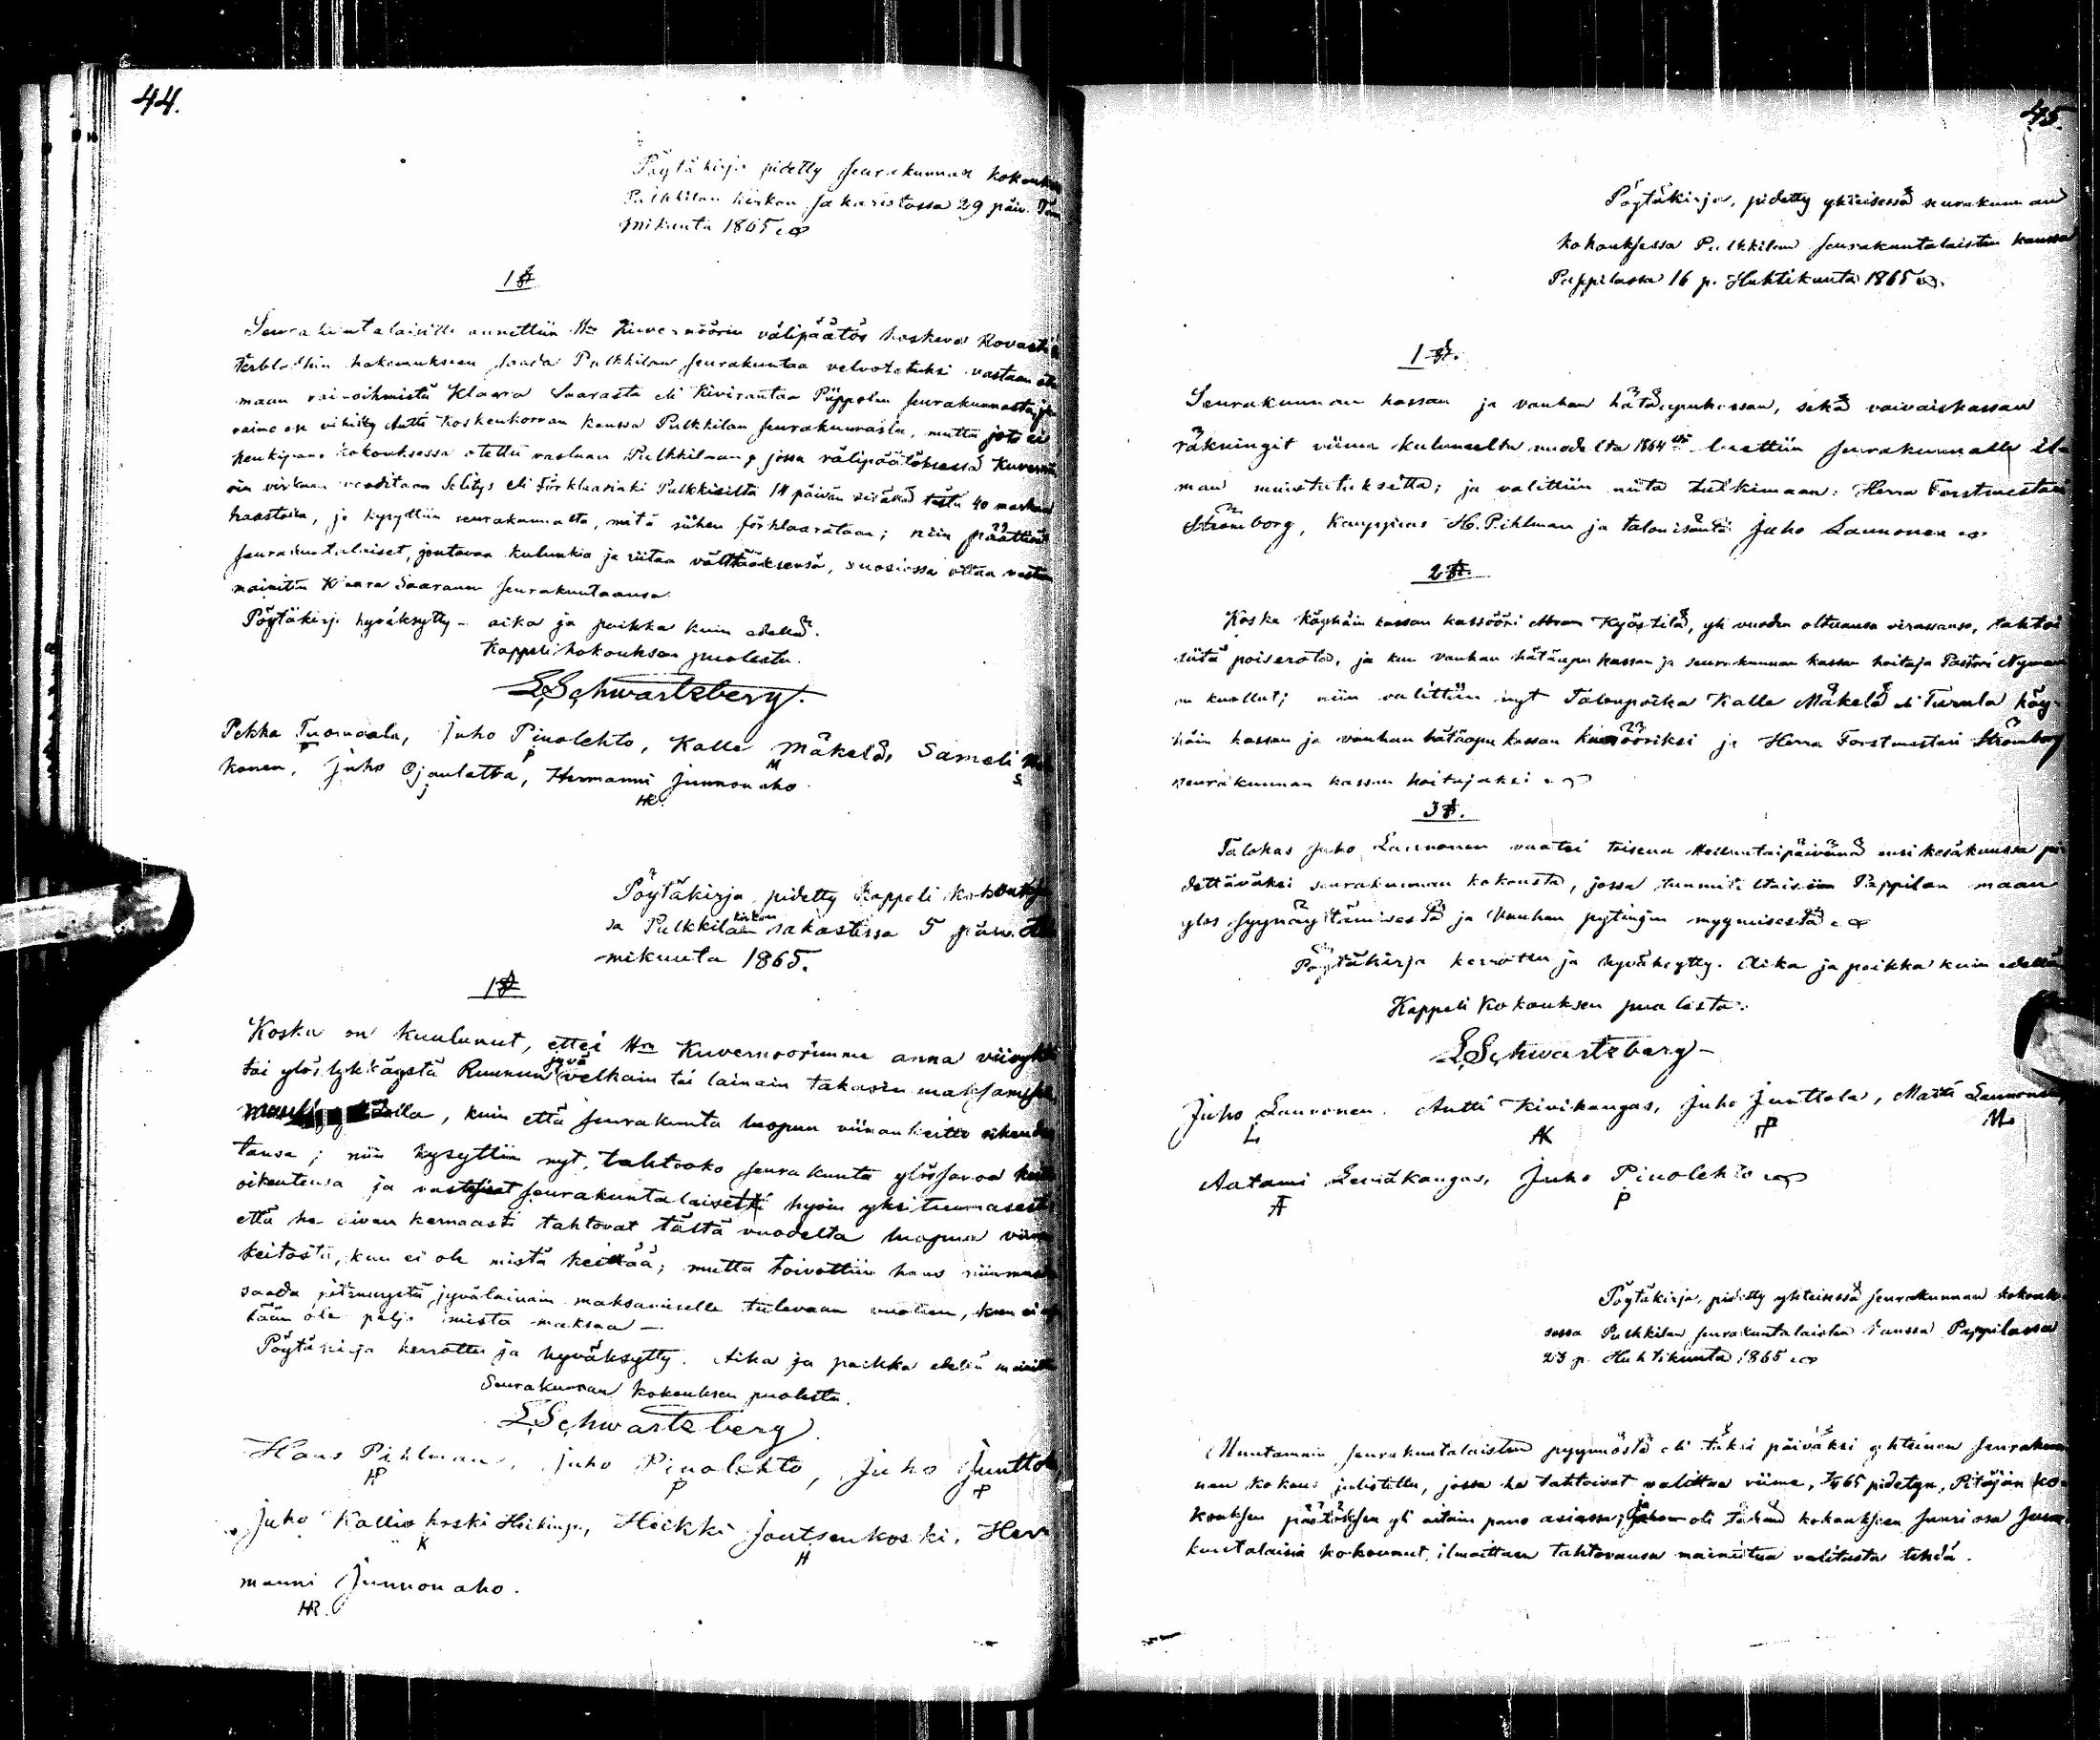 44.
Pöytäkirja pidetty seurakunnan kokouk
Pulkkilan kirkon sakaristossa 29 päiv. Tam
mikuuta 1865
1 §
Seurakuntalaisille annettiin Hra Kuvernöörin välipäätös koskeva Rovasti
hakemukseen saada Pulkkilan seurakuntaa velvotetuksi vastaan otta
maan vaimoihmistä Klaara Saarasta eli Kivirantaa Piippolan seurakunnasta, jo
vaimo on vihitty Antti Koskenkorvan kanssa Pulkkilan seurakunnasta, mutta jota ei
henkipano kokouksessa otettu vastaan Pulkkilaan; jossa välipäätöksessä Kuvernöö
rin virkaan vaaditaan Selitys eli Förklaarinki Pulkkisilta 14 päivän sisässä tästä 40 markan
haastolla, ja kysyttiin seurakunnalta, mitä siihen förklaarataan; niin päättivät
seurakuntalaiset, joutavaa kulunkia ja riitaa välttääksensä, suosiossa ottaa vastaan
mainitun Klaara Saarasen seurakuntaansa.
Pöytäkirja hyväksytty - aika ja paikka kuin edellä.
Kappeli kokouksen puolesta.
LSchwartzberg.
Pekka Tuomaala, Juho Pinolehto, Kalle Mäkelä, Sameli
T P M S
konen, Juho Ojanlatva, Hermanni Junnonaho.
J HR.
Pöytäkirja pidetty Kappeli kokoukses
sa Pulkkilan kirkon sakastissa 5 päiv. Hel
mikuuta 1865.
1 §
Koska on kuulunut, ettei Hra Kuvernöörimme anna viivykki
tai ylöslykkäystä Ruunun jyvä velkain tai lainain takasin maksamisen
kuin että seurakunta luopuu viinankeitto oikeudes
tansa; niin kysyttiin nyt, tahtooko seurakunta ylösantaa keitto
oikeutensa ja vastasivat seurakuntalaisetki hyvin yksituumasesti
että he aivan kernaasti tahtovat tältä vuodelta luopua viinan
keitosta, kun ei ole mistä keittää; mutta toivottiin haus niinmuo
saada pitennystä jyvälainain maksamiselle tulevaan vuoteen, kun ei
tään ole paljo mistä maksaa —
Pöytäkirja kerrottu ja hyväksytty. Aika ja paikka edellä mainittu
Seurakunnan kokouksen puolesta.
LSchwartzberg.
Hans Pihlman, Juho Pinolehto, Juho Junttola
HP P JP
Juho Kalliokoski Heikinp., Heikki Joutsenkoski, Her
K H
manni Junnonaho.
HR.
45.
Pöytäkirja, pidetty yhteisessä seurakunnan
kokouksessa Pulkkilan seurakuntalaisten kanssa
Pappilassa 16 p. Huhtikuuta 1865.
1 §.
Seurakunnan kassan ja vanhan hätäapukassan, sekä vaivaiskassan
räkningit viime kuluneelta vuodelta 1864 luettiin seurakunnalle il-
man muistutuksitta; ja valittiin niitä tutkimaan: Herra Forstmestari
Strömborg, Kauppias H. Pihlman ja talonisäntä Juho Launonen
2 §.
Koska Köyhäin kassan kassööri Abram Kyöstilä, yli vuoden oltuansa virassansa, tahtoi
siitä poiserota, ja kun vanhan hätäapu kassan ja seurakunnan kassan hoitaja Pastori Nyman
on kuollut; niin valittiin nyt Talonpoika Kalle Mäkelä eli Turula köy-
häin kassan ja vanhan hätäapu kassan kassööriksi ja Herra Forstmestari Strömborg
seurakunnan kassan hoitajaksi.
3 §.
Talokas Juho Launonen vaatei toisena Helluntaipäivänä ensi kesäkuussa pi-
dettäväksi seurakunnan kokousta, jossa tunnusteltaisiin Pappilan maan
ylös syynäytämisestä ja Vanhan pytingin myymisestä.
Pöytäkirja kerrottu ja hyväksytty. Aika ja paikka kuin edellä.
Kappeli Kokouksen puolesta:
LSchwartzberg —
Juho Launonen. Antti Kivikangas, Juho Junttola, Matti Launonen,
L AK JP ML
Aatami Leviäkangas, Juho Pinolehto
A P
Pöytäkirja, pidetty yhteisessä seurakunnan kokouk-
sessa Pulkkilan seurakuntalaisten kanssa Pappilassa
23 p. Huhtikuuta 1865
Muutamain seurakuntalaisten pyynnöstä oli täksi päiväksi yhteinen seurakun-
nan kokous julistettu, jossa he tahtoivat valittaa viime, 65 pidetyn, Pitäjän ko-
kouksen päätöksen yli aitain pano asiassa; oli tähän kokouksen suuri osa seura-
kuntalaisia kokounut, ilmoittaen tahtovansa mainitun valitusta tehdä.